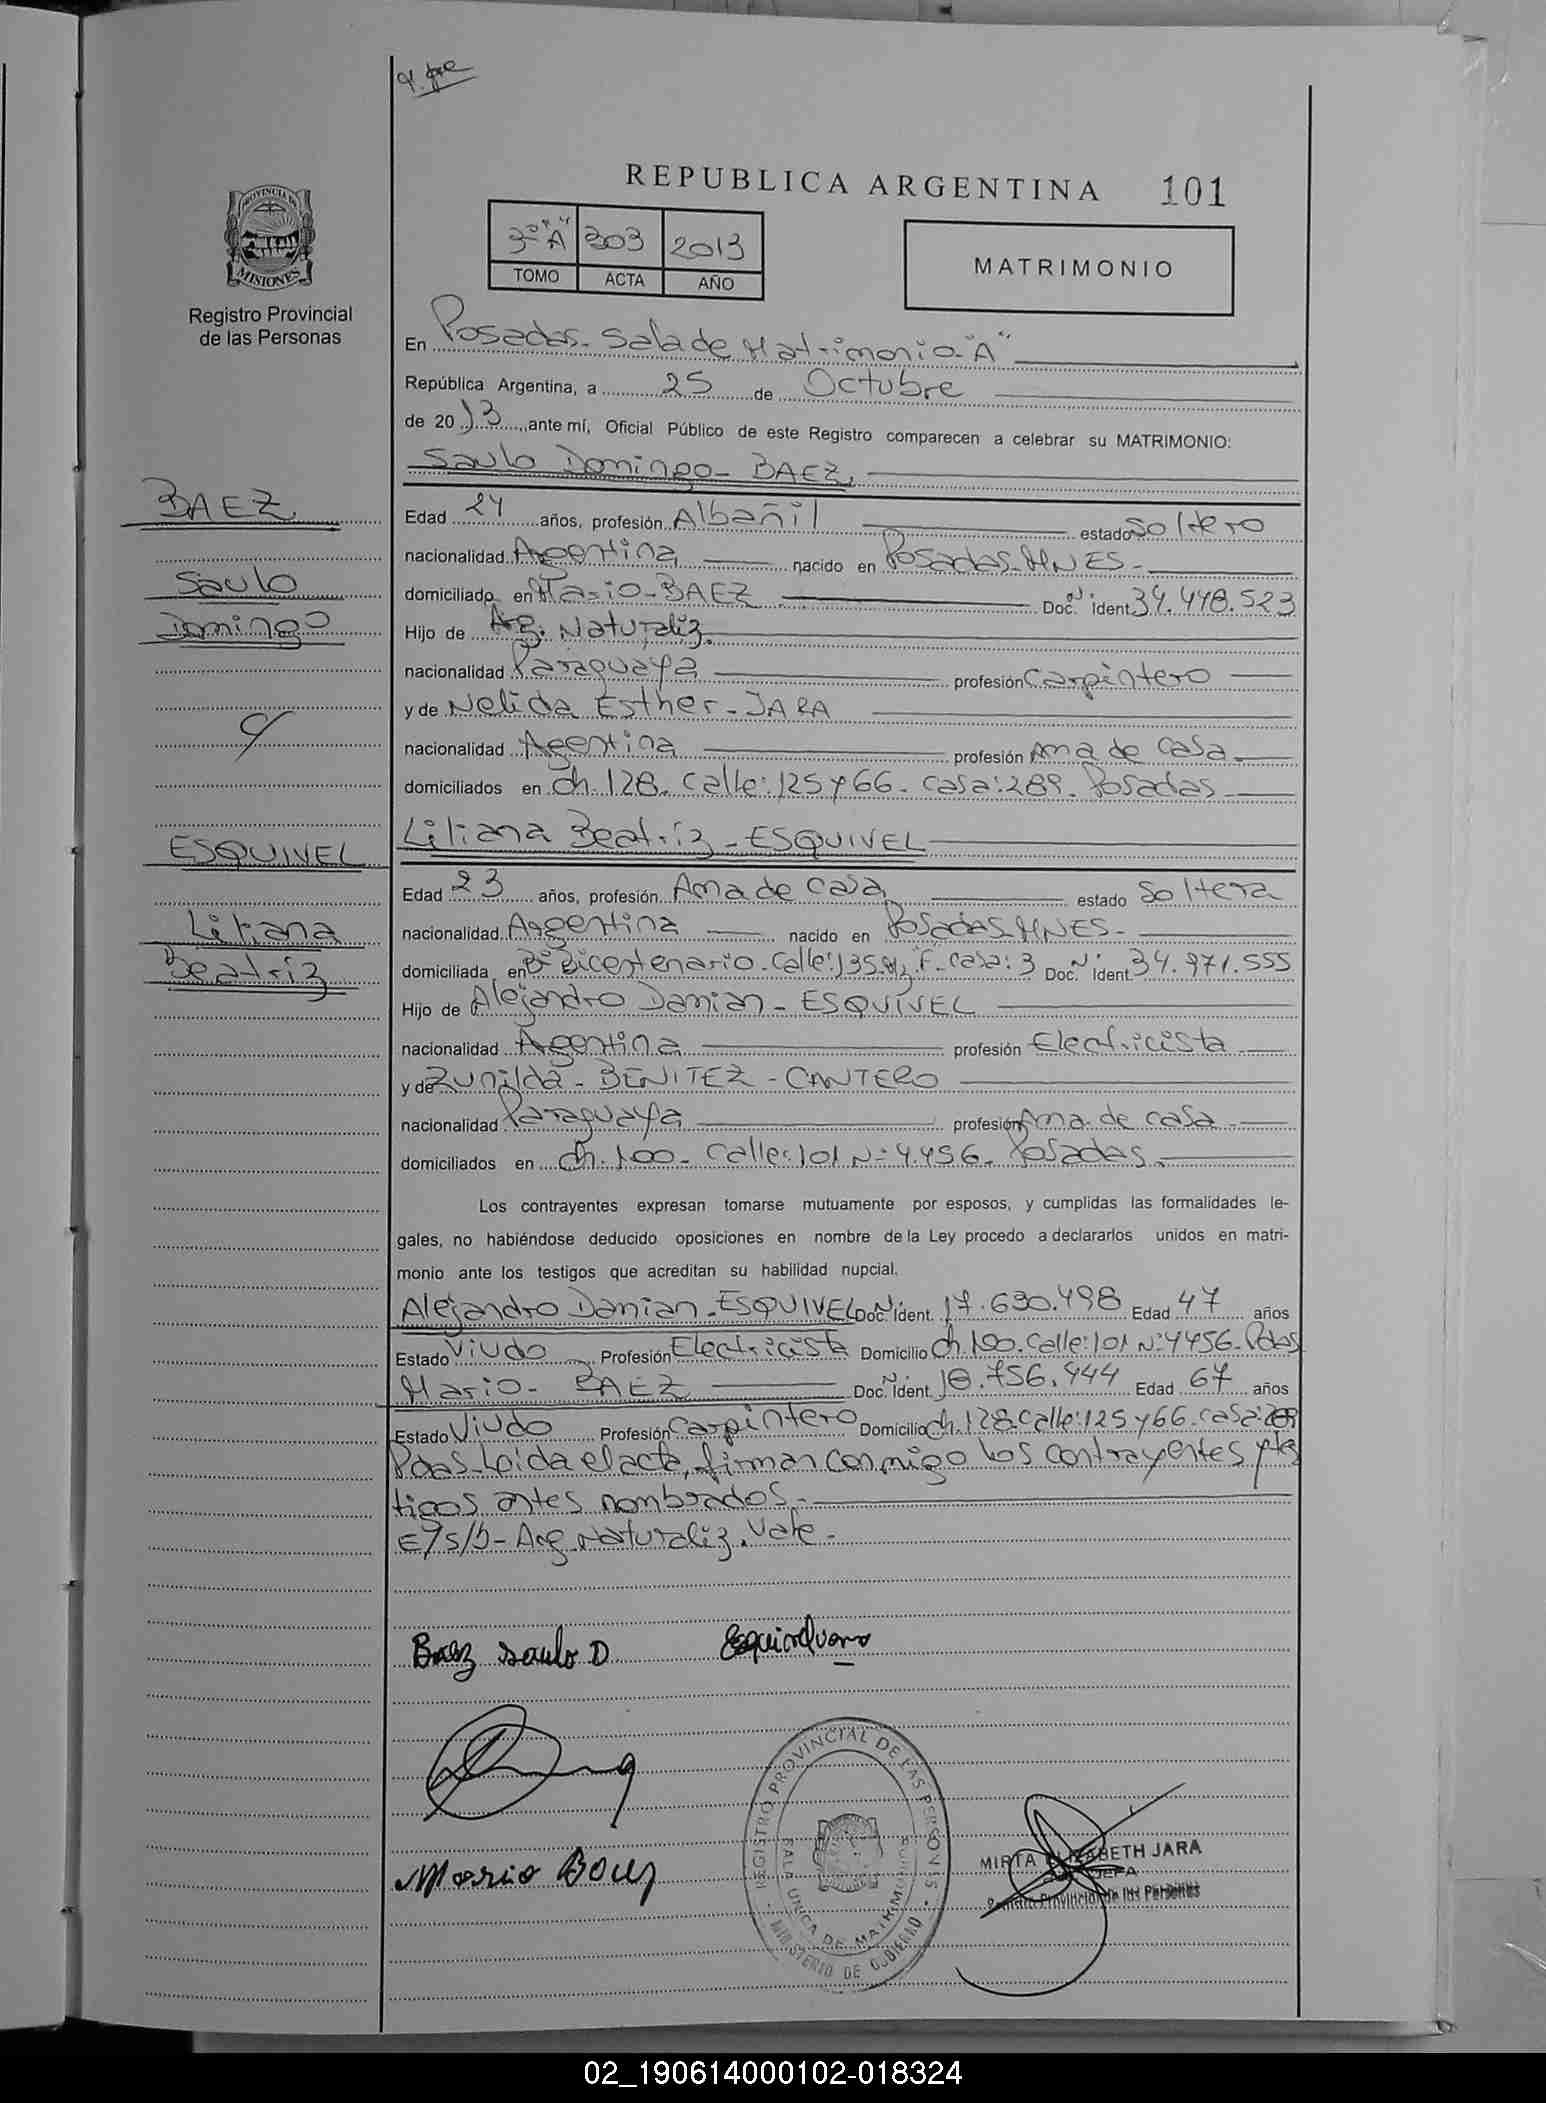 REPUBLICA ARGENTINA 101
PROVINCIA DE
MISIONES
Registro Provincial
de las Personas
3º "A" 303 2013
TOMO ACTA AÑO
MATRIMONIO
En Posadas - Sala de Matrimonio - "A"
República Argentina, a 25 de Octubre
de 2013, ante mí, Oficial Público de este Registro comparecen a celebrar su MATRIMONIO:
Saulo Domingo - BAEZ.
BAEZ
Saulo
Domingo
Edad 24 años, profesión Albañil estado Soltero
nacionalidad Argentina nacido en Posadas - MNES -
domiciliado en Mario - BAEZ Doc. Nº ident. 34.448.523
Hijo de Arg. Naturaliz.
nacionalidad Paraguaya profesión Carpintero
y de Nelida Esther - JARA
nacionalidad Agentina profesión Ama de casa
domiciliados en Ch. 128. Calle: 125 y 66 - casa: 289. Posadas
c/
ESQUIVEL
Liliana
Beatriz
Liliana Beatriz - ESQUIVEL
Edad 23 años, profesión Ama de casa estado Soltera
nacionalidad Argentina nacido en Posadas - MNES -
domiciliada en Bº Bicentenario. Calle: 135. Mz. F - Casa: 3 Doc. Nº ident. 34.971.555
Hijo de Alejandro Damian - ESQUIVEL
nacionalidad Agentina profesión Electricista
y de Zunilda - BENITEZ - CANTERO
nacionalidad Paraguaya profesión Ama de casa
domiciliados en Ch. 100 - Calle: 101 Nº 4.456 - Posadas.
Los contrayentes expresan tomarse mutuamente por esposos, y cumplidas las formalidades le-
gales, no habiéndose deducido oposiciones en nombre de la Ley procedo a declararlos unidos en matri-
monio ante los testigos que acreditan su habilidad nupcial.
Alejandro Damian - ESQUIVEL Doc. Nº ident. 17.630.498 Edad 47 años
Estado Viudo Profesión Electricista Domicilio Ch. 100. Calle: 101 Nº 4456 - Pdas
Mario - BAEZ Doc. Nº ident. 18.756.944 Edad 67 años
Estado Viudo Profesión Carpintero Domicilio Ch. 128. Calle: 125 y 66. casa: 289
Pdas - Leida el acta, firman conmigo los contrayentes y tes
tigos antes nombrados -
E/s/b - Arg. Naturaliz. Vale -
Baez Saulo D
Mario Baez
REGISTRO PROVINCIAL DE LAS PERSONAS
SALA UNICA DE MATRIMONIO
MINISTERIO DE GOBIERNO
MIRTA ELIZABETH JARA
JEFA
Registro Provincial de las Personas
02_190614000102-018324